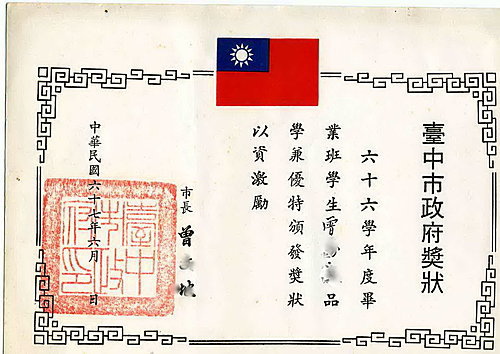 臺中市政府獎狀
六十六學年度畢
業班學生曾 品
學兼優特頒發獎狀
以資激勵
市長 曾
中華民國六十七年六月 日
臺中市政府印